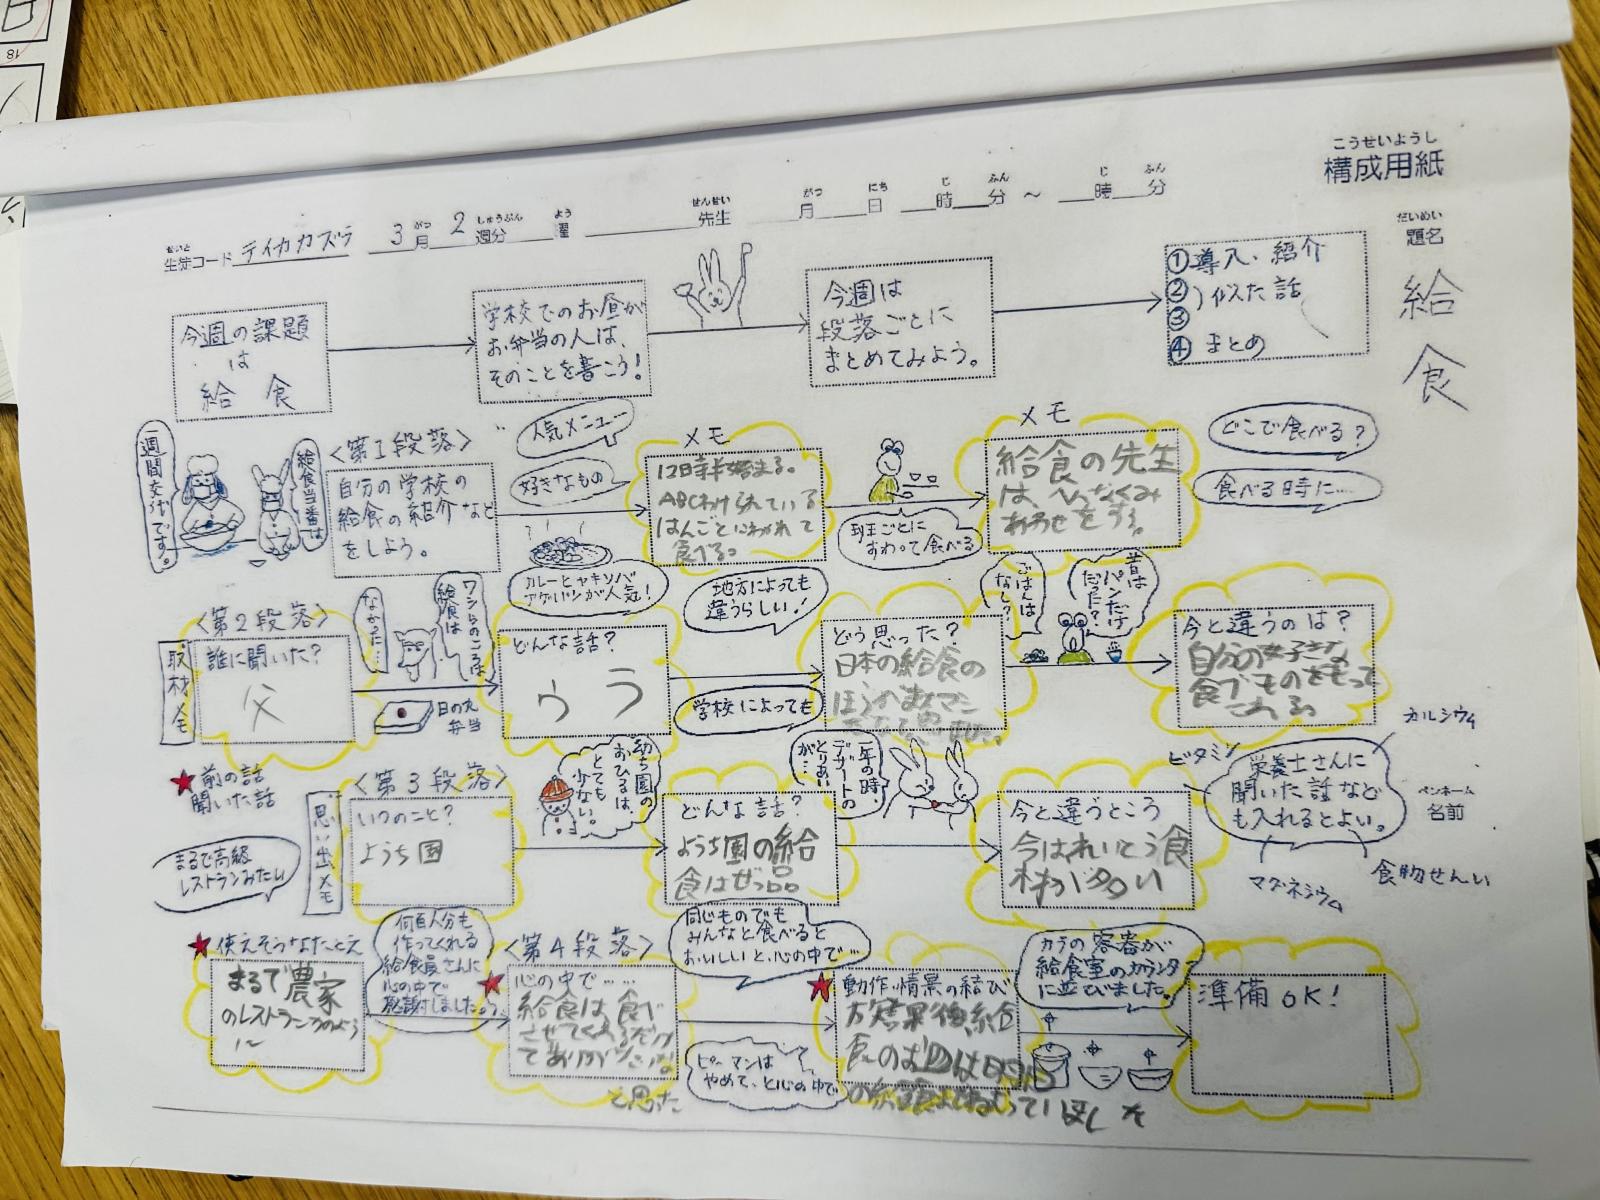 こうせいようし
構成用紙
だいめい
題名
給食
ペンネーム
名前
せいと
生徒コード テイカカズラ 3月 2週分 曜 先生 月 日 時 分 ~ 時 分
がつ しゅうぶん よう せんせい がつ にち じ ふん じ ふん
今週の課題
は
給 食
学校でのお昼が
お弁当の人は、
そのことを書こう!
今週は
段落ごとに
まとめてみよう。
①導入、紹介
②)似た話
③
④ まとめ
一週間交代です。
給食当番は
<第1段落>
自分の学校の
給食の紹介など
をしよう。
人気メニュー
好きなもの
カレーとヤキソバ
アゲパンが人気!
メモ
12時半始まる。
ABCわけられている
はんごとにわかれて
食べる。
班ごとに
すわって食べる
メモ
給食の先生
は、
をする。
どこで食べる?
食べる時に……
<第2段落>
取材メモ
誰に聞いた?
父
ワシらのころは
給食は
なかった…
日の丸
弁当
どんな話?
ウラ
地方によっても
違うらしい!
学校によっても
どう思った?
日本の給食の
ほうが
ごはんは
なし?
昔は
パンだけ
だった?
今と違うのは?
自分の
食べものをもって
これる
★前の話
聞いた話
<第3段落>
思い出メモ
いつのこと?
ようち園
幼ち園の
おひるは、
とても
少ない。
どんな話?
ようち園の給
食はぜっ品
一年の時、
デザートの
とりあい
が…
今と違うところ
今はれいとう食
材が多い
栄養士さんに
聞いた話など
も入れるとよい。
カルシウム
ビタミン
マグネシウム
食物せんい
まるで高級
レストランみたい
★使えそうなたとえ
まるで農家
のレストランのよう
に~
何百人分も
作ってくれる
給食員さんに
心の中で
感謝しました。
<第4段落>
★心の中で……
給食は食べ
させてくれるだけ
でありがたいな
と思った
同じものでも
みんなと食べると
おいしいと、心の中で…
ピーマンは
やめて、と心の中で
★動作、情景の結び
給
食のお皿は
カラの容器が
給食室のカウンタ
に並びました。
準備OK!